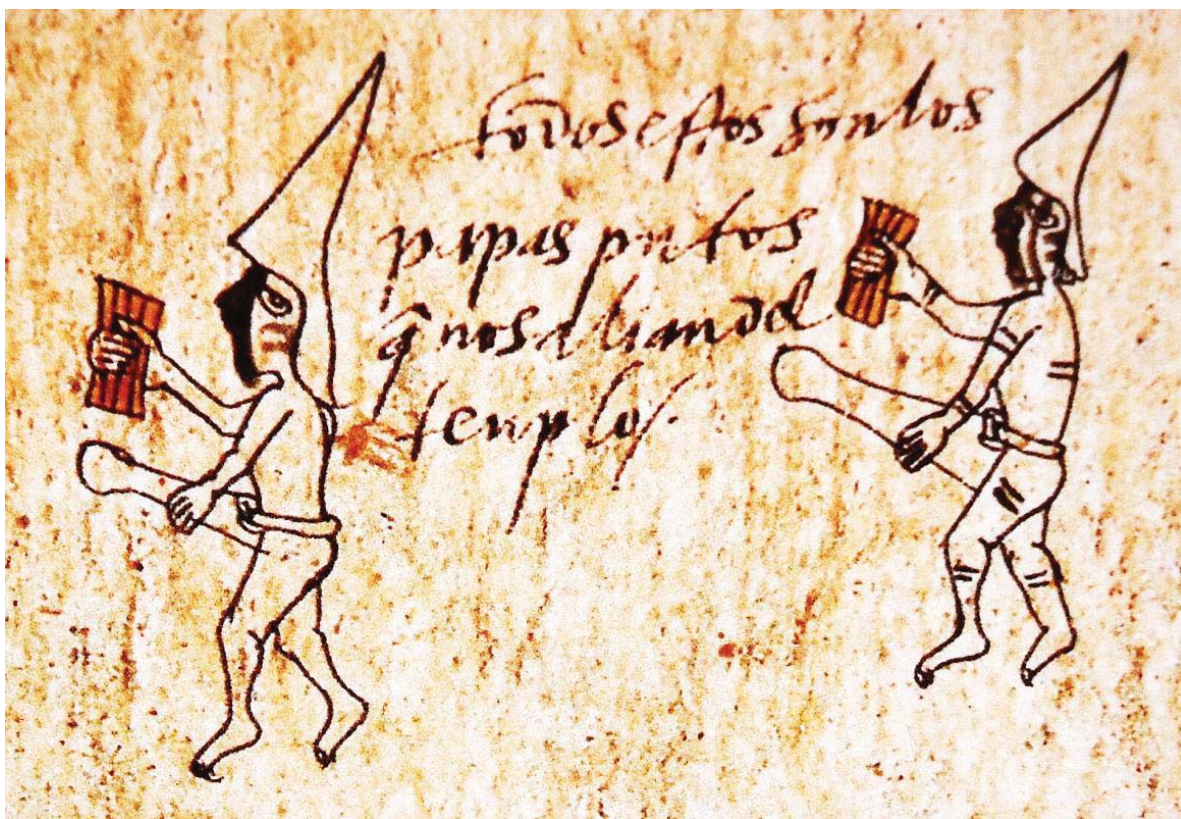 todos estos son los
papas putos
q̃ no salian del
tenplo